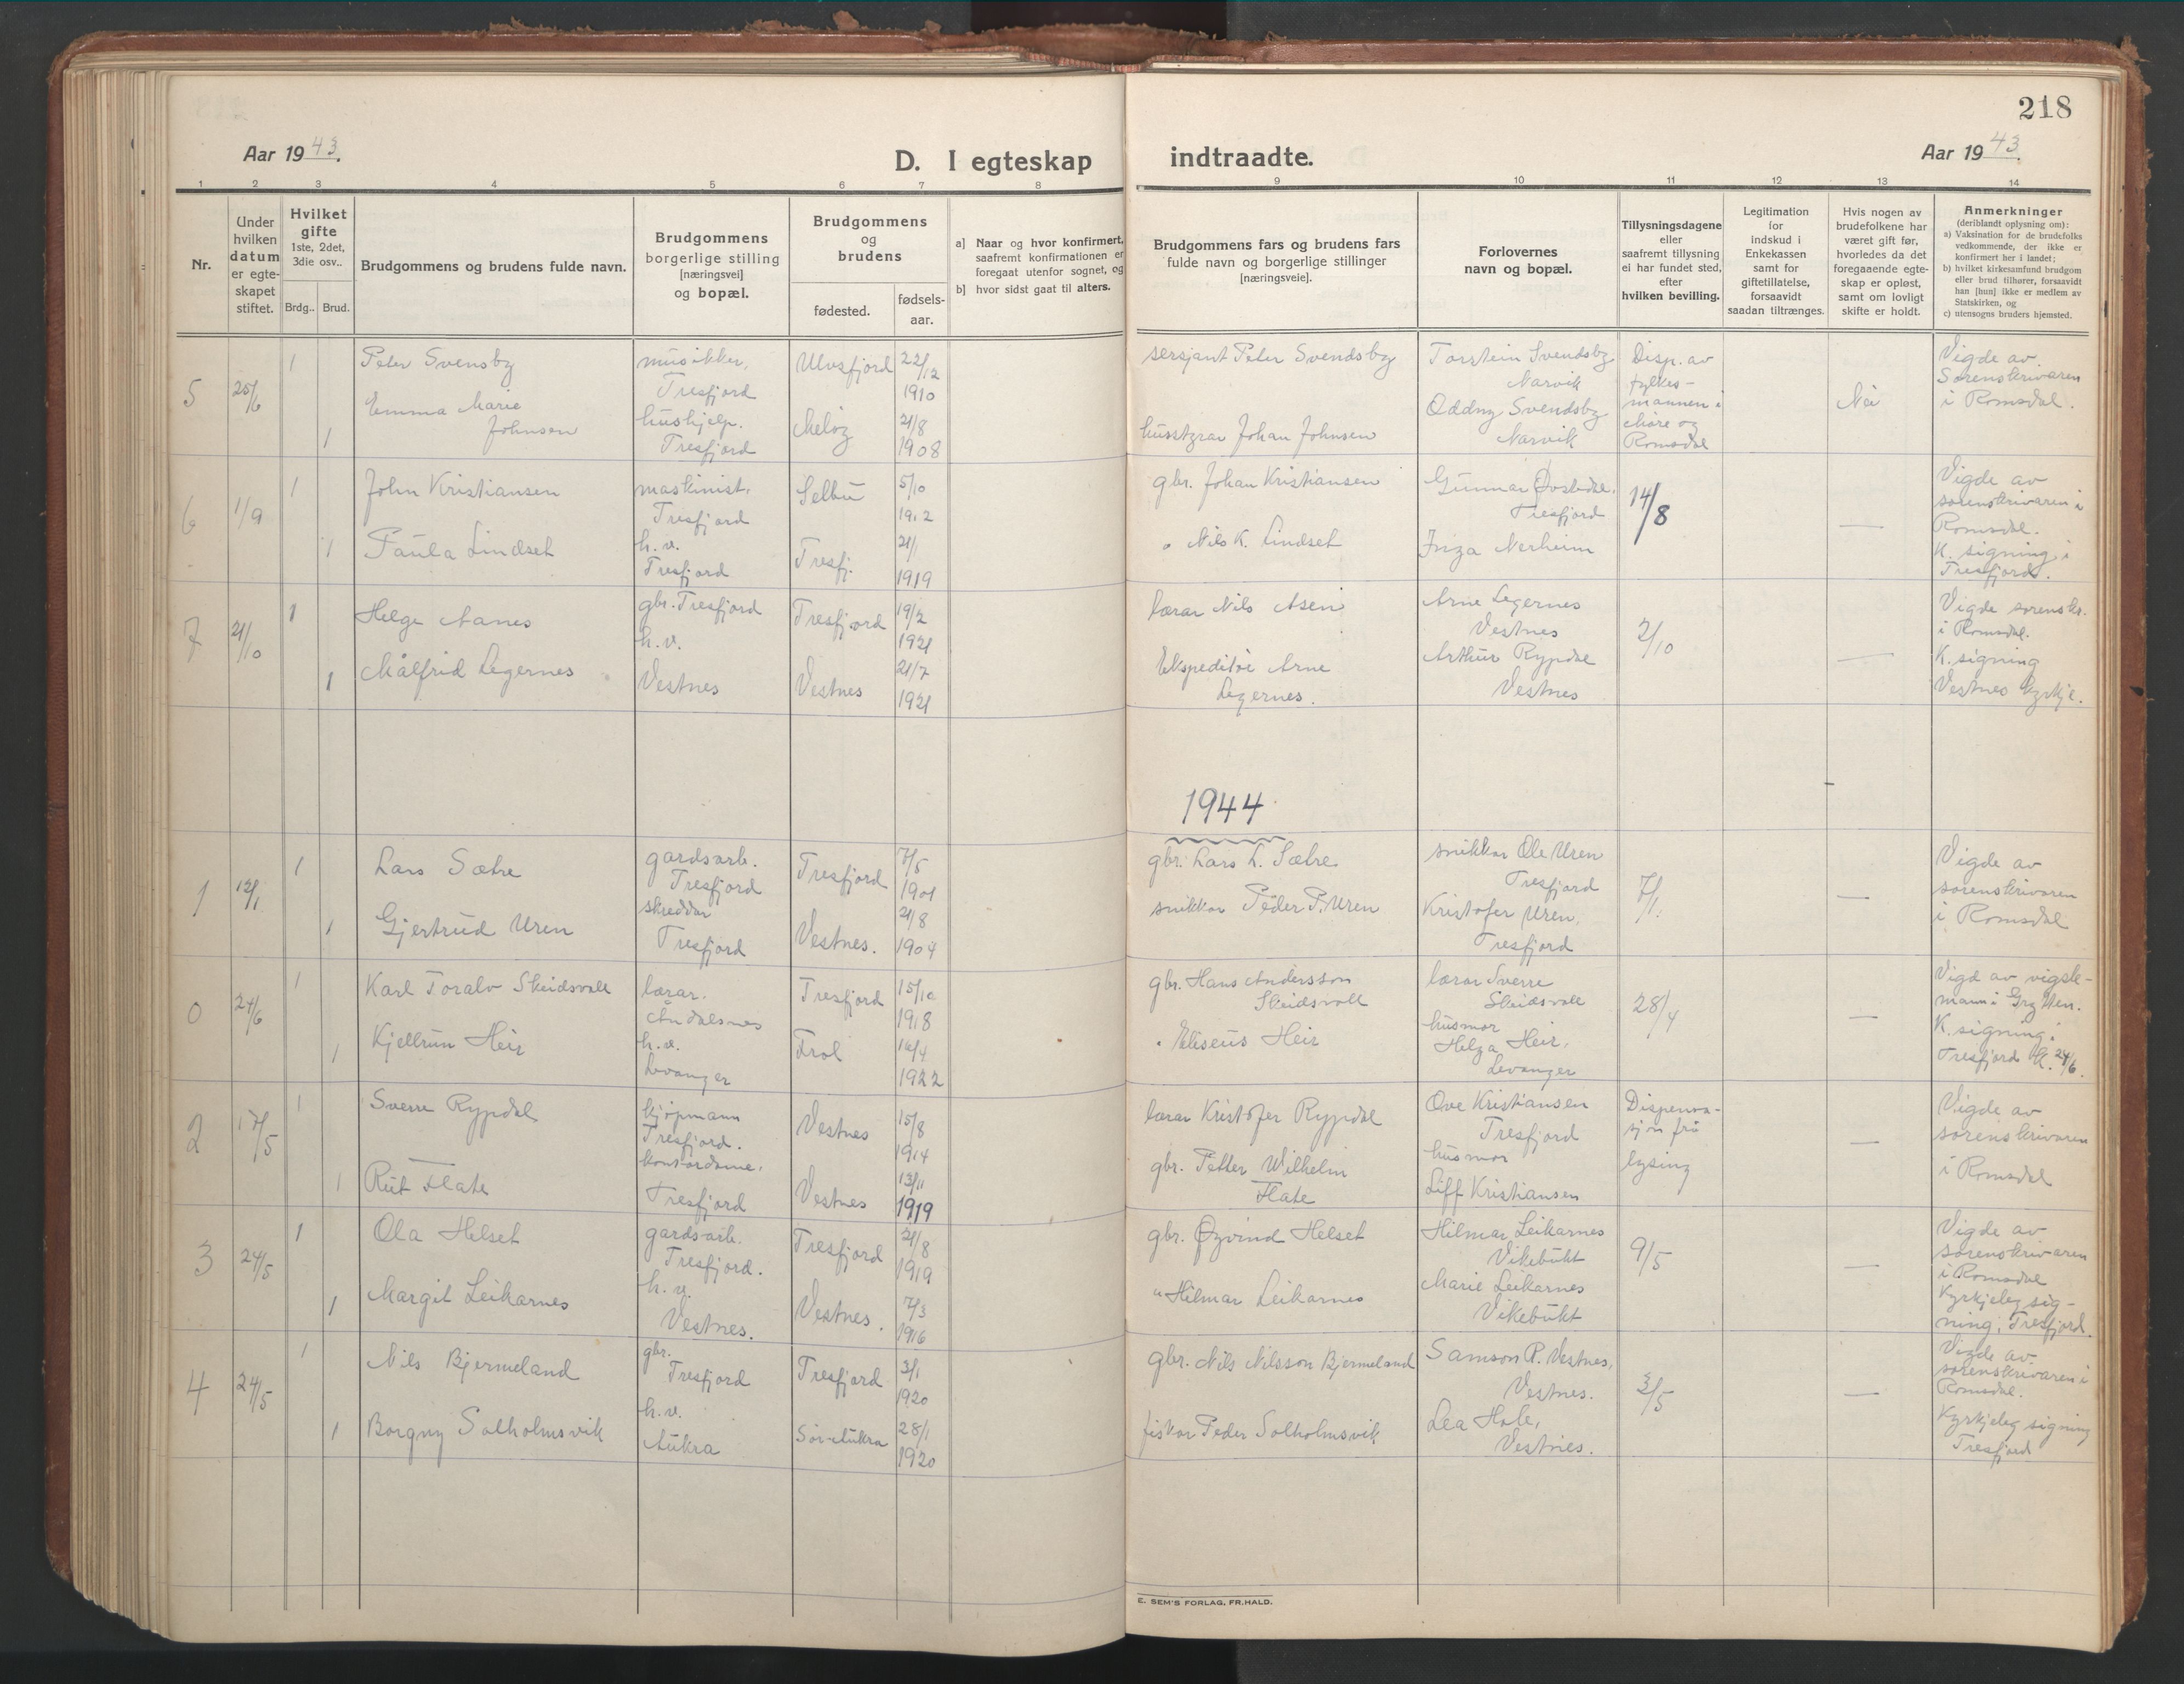 218
Aar 1943.
D. I egteskap indtraadte.
Aar 1943.
1 2 3 4 5 6 7 8 9 10 11 12 13 14
Nr.
Under hvilken datum er egteskapet stiftet.
Hvilket gifte 1ste, 2det, 3die osv..
Brdg.. Brud.
Brudgommens og brudens fulde navn.
Brudgommens borgerlige stilling [næringsvei] og bopæl.
Brudgommens og brudens
fødested.
fødsels-aar.
a] Naar og hvor konfirmert, saafremt konfirmationen er foregaat utenfor sognet, og
b] hvor sidst gaat til alters.
Brudgommens fars og brudens fars fulde navn og borgerlige stillinger [næringsveie].
Forlovernes navn og bopæl.
Tillysningsdagene eller saafremt tillysning ei har fundet sted, efter hvilken bevilling.
Legitimation for indskud i Enkekassen samt for giftetillatelse, forsaavidt saadan tiltrænges.
Hvis nogen av brudefolkene har været gift før, hvorledes da det foregaaende egteskap er opløst, samt om lovligt skifte er holdt.
Anmerkninger (deriblandt oplysning om):
a) Vaksination for de brudefolks vedkommende, der ikke er konfirmert her i landet;
b) hvilket kirkesamfund brudgom eller brud tilhører, forsaavidt han [hun] ikke er medlem av Statskirken, og
c) utensogns bruders hjemsted.
5 25/6 1 Peter Svensby musikker, Tresfjord Ulvsfjord 22/12 1910 sersjant Peter Svendsby Torstein Svendsby Narvik Disp. av fylkesmannen i Møre og Romsdal Nei Vigde av Sorenskrivaren i Romsdal.
1 Emma Marie Johnsen hushjelp. Tresfjord Meløy 21/8 1908 husstyrar Johan Johnsen Oddny Svendsby Narvik
6 1/9 1 John Kristiansen maskinist, Tresfjord Selbu 5/10 1912 gbr. Johan Kristiansen Gunnar Tresfjord 14/8 — Vigde av sorenskrivaren i Romsdal. K. signing i Tresfjord.
1 Paula Lindset h. v. Tresfjord Tresfj. 21/1 1919 " Nils K. Lindset Inga Nerheim
7 21/10 1 Helge Aanes gbr. Tresfjord Tresfjord 19/2 1921 lærar Nils Arne Legernes Vestnes 2/10 — Vigde sorenskr. i Romsdal. K. signing Vestnes kyrkje.
1 Målfrid Legernes h. v. Vestnes Vestnes 21/7 1921 Ekspeditør Arne Legernes. Arthur Rypdal Vestnes
1944
1 12/1 1 Lars Sætre gardsarb. Tresfjord Tresfjord 7/5 1901 gbr. Lars L. Sætre snikkar Ole Uren Tresfjord 7/1. — Vigde av sorenskrivaren i Romsdal
1 Gjertrud Uren skreddar Tresfjord Vestnes. 21/8 1904 snikkar Peder P. Uren Kristofer Uren, Tresfjord
0 24/6 1 Karl Toralv Skeidsvoll lærar. Åndalsnes Tresfjord 15/10 1918 gbr. Hans Andersson Skeidsvoll lærar Sverre Skeidsvoll 28/4 — Vigd av vigslemann i Grytten. K. signing i Tresfjord K. 24/6.
1 Kjellrun Heir h. v. Levanger Frol 16/4 1922 " Eliseus Heir husmor Helga Heir, Levanger
2 17/5 1 Sverre Rypdal kjøpmann Tresfjord. Vestnes 15/8 1914 lærar Kristofer Rypdal Ove Kristiansen Tresfjord Dispensasjon frå lysing — Vigde av sorenskrivaren i Romsdal
1 Rut Flate kontordame, Tresfjord Vestnes 13/11 1919 gbr. Petter Wilhelm Flate husmor Liff Kristiansen
3 24/5 1 Ola Helset gardsarb. Tresfjord. Tresfjord 21/8 1919 gbr. Øyvind Helset Hilmar Leikarnes Vikebukt 9/5 — Vigde av sorenskrivaren i Romsdal Kyrkjeleg signing, Tresfjord
1 Margit Leikarnes h. v. Vestnes. Vestnes. 7/3 1916 " Hilmar Leikarnes Marie Leikarnes Vikebukt
4 24/5 1 Nils Bjermeland gbr. Tresfjord Tresfjord 3/1 1920 gbr. Nils Nilsson Bjermeland Samson P. Vestnes, Vestnes. 3/5 — Vigde av sorenskrivaren i Romsdal. Kyrkjeleg signing Tresfjord
1 Borgny Solholmsvik h. v. Aukra Sør-Aukra 28/1 1920 fiskar Peder Solholmsvik Lea Hole, Vestnes.
E. SEM'S FORLAG, FR.HALD.